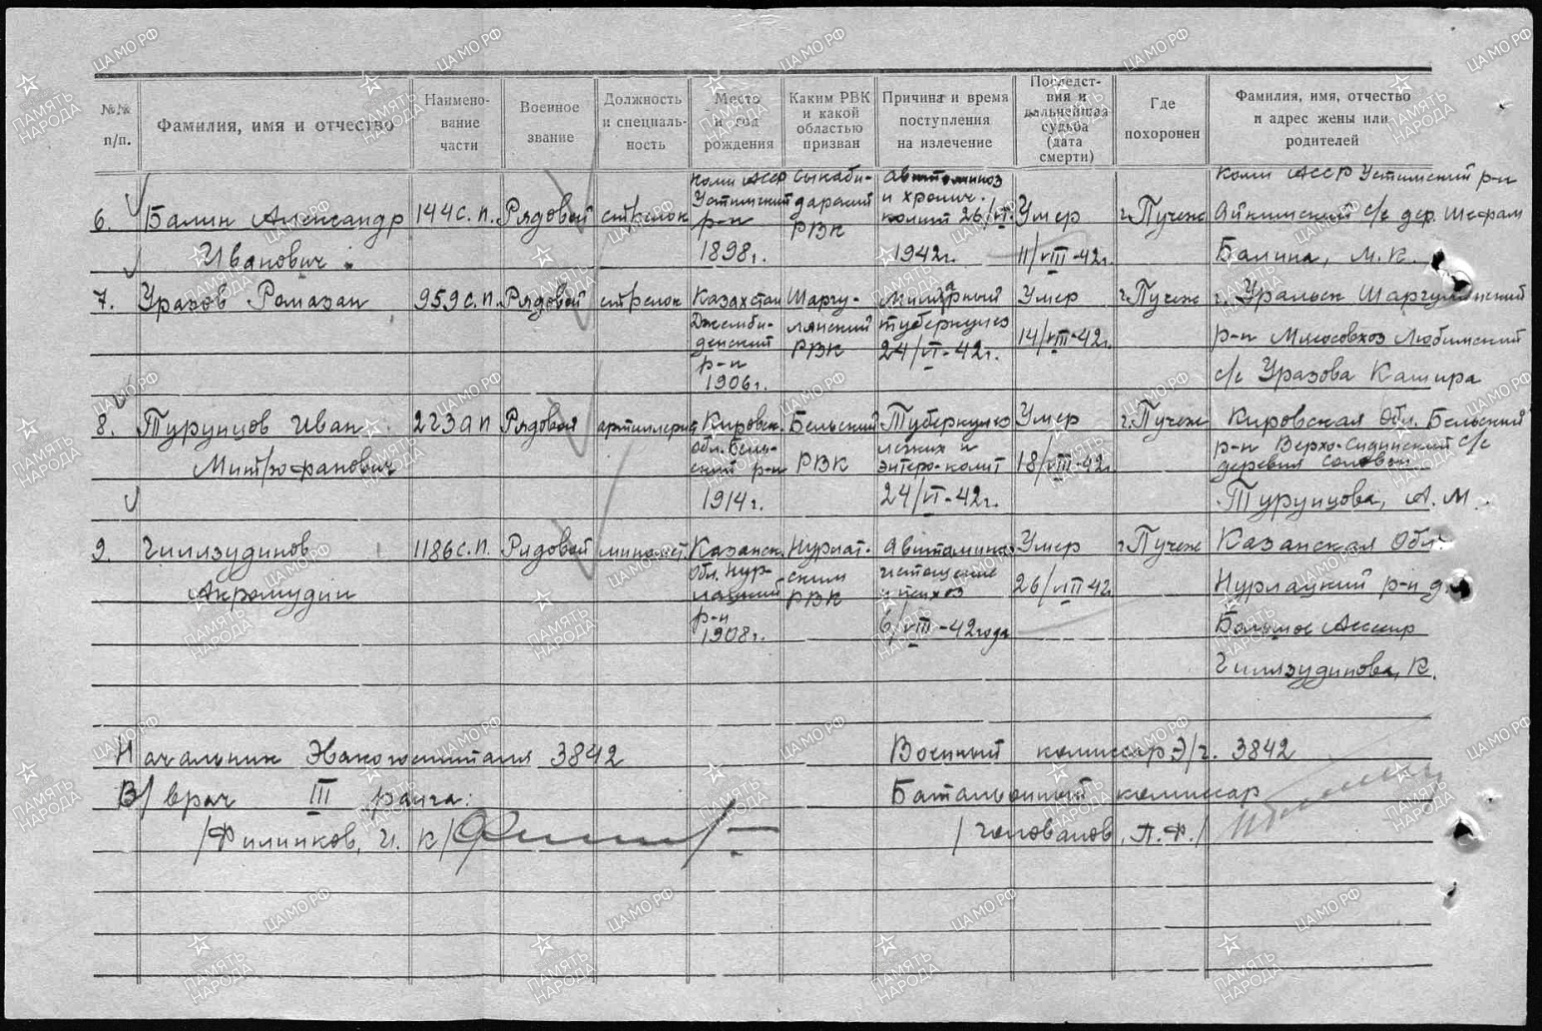 №№ п/п.
Фамилия, имя и отчество
Наимено-
вание
части
Военное
звание
Должность
и специаль-
ность
Место
и год
рождения
Каким РВК
и какой
областью
призван
Причина и время
поступления
на излечение
Последст-
вия и
дальнейшая
судьба
(дата
смерти)
Где
похоронен
Фамилия, имя, отчество
и адрес жены или
родителей
6. Балин Александр
Иванович
144 с.п.
Рядовой
стрелок
Коми АССР
Устимский
р-н
1898г.
Сыкаби-
дарский
РВК
Авитоминоз
и хронич.
колит 26/VI.
1942г.
Умер
11/VIII-42г.
г.Пучеж
Коми АССР Устимский р-н
Айкинский с/с дер. Шефам
Балина, М.К.
7. Уразов Рамазан
959 с.п.
Рядовой
стрелок
Казахстан
Джамби-
денский
р-н
1906г.
Шаргу-
лянский
РВК
Милярный
туберкулез
24/VI-42г.
Умер
14/VIII-42г.
г.Пучеж
г. Уральск
р-н Мясосовхоз Любимский
с/с Уразова Кашира
8. Турунцов Иван
Митрофанович
223 ап
Рядовой
артиллерис
Кировск.
обл. Бель-
ский р-н
1914г.
Бельский
РВК
Туберкулез
легких и
энтеро-колит
24/VI-42г.
Умер
18/VIII-42г.
г.Пучеж
Кировская Обл. Бельский
р-н Верхо-Сидинский с/с
деревня
Турунцова, А.М.
9. Гиллзудинов
Акромудин
1186 с.п.
Рядовой
миномет.
Казанск.
Обл. Нур-
лацкий
р-н
1908г.
Нурлат-
ским
РВК
Авитаминоз
истощение
и психоз
6/VIII-42года
Умер
26/VIII 42
г.Пучеж
Казанская Обл.
Нурлацкий р-н д.
Большое
Гиллзудинова, К.
Начальник Эвакогоспиталя 3842
В/врач III ранга:
/Филинков, И. К/
Военный комиссар Э/г. 3842
Батальонный комиссар
/Головалов, П.Ф./
ПАМЯТЬ НАРОДА
ЦАМО РФ